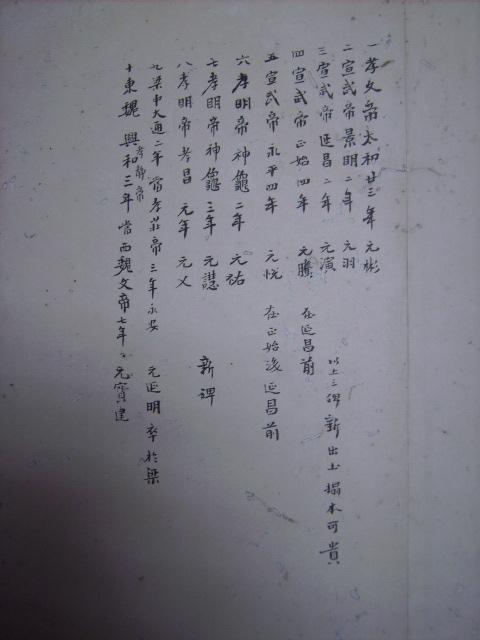 一 孝文帝 太初廿三年 元彬
二 宣武帝 景明二年 元羽
三 宣武帝 延昌二年 元演
以上三碑新出土搨本可貴
四 宣武帝 正始四年 元騰 在延昌前
五 宣武帝 永平四年 元悦 在正始後延昌前
六 孝明帝 神龜二年 元祐
七 孝明帝 神龜三年 元譿 新碑
八 孝明帝 孝昌元年 元乂
九 梁中大通二年 當孝莊帝三年永安 元延明卒於梁
十 東魏孝靜帝 興和三年 當西魏文帝七年 元寶建